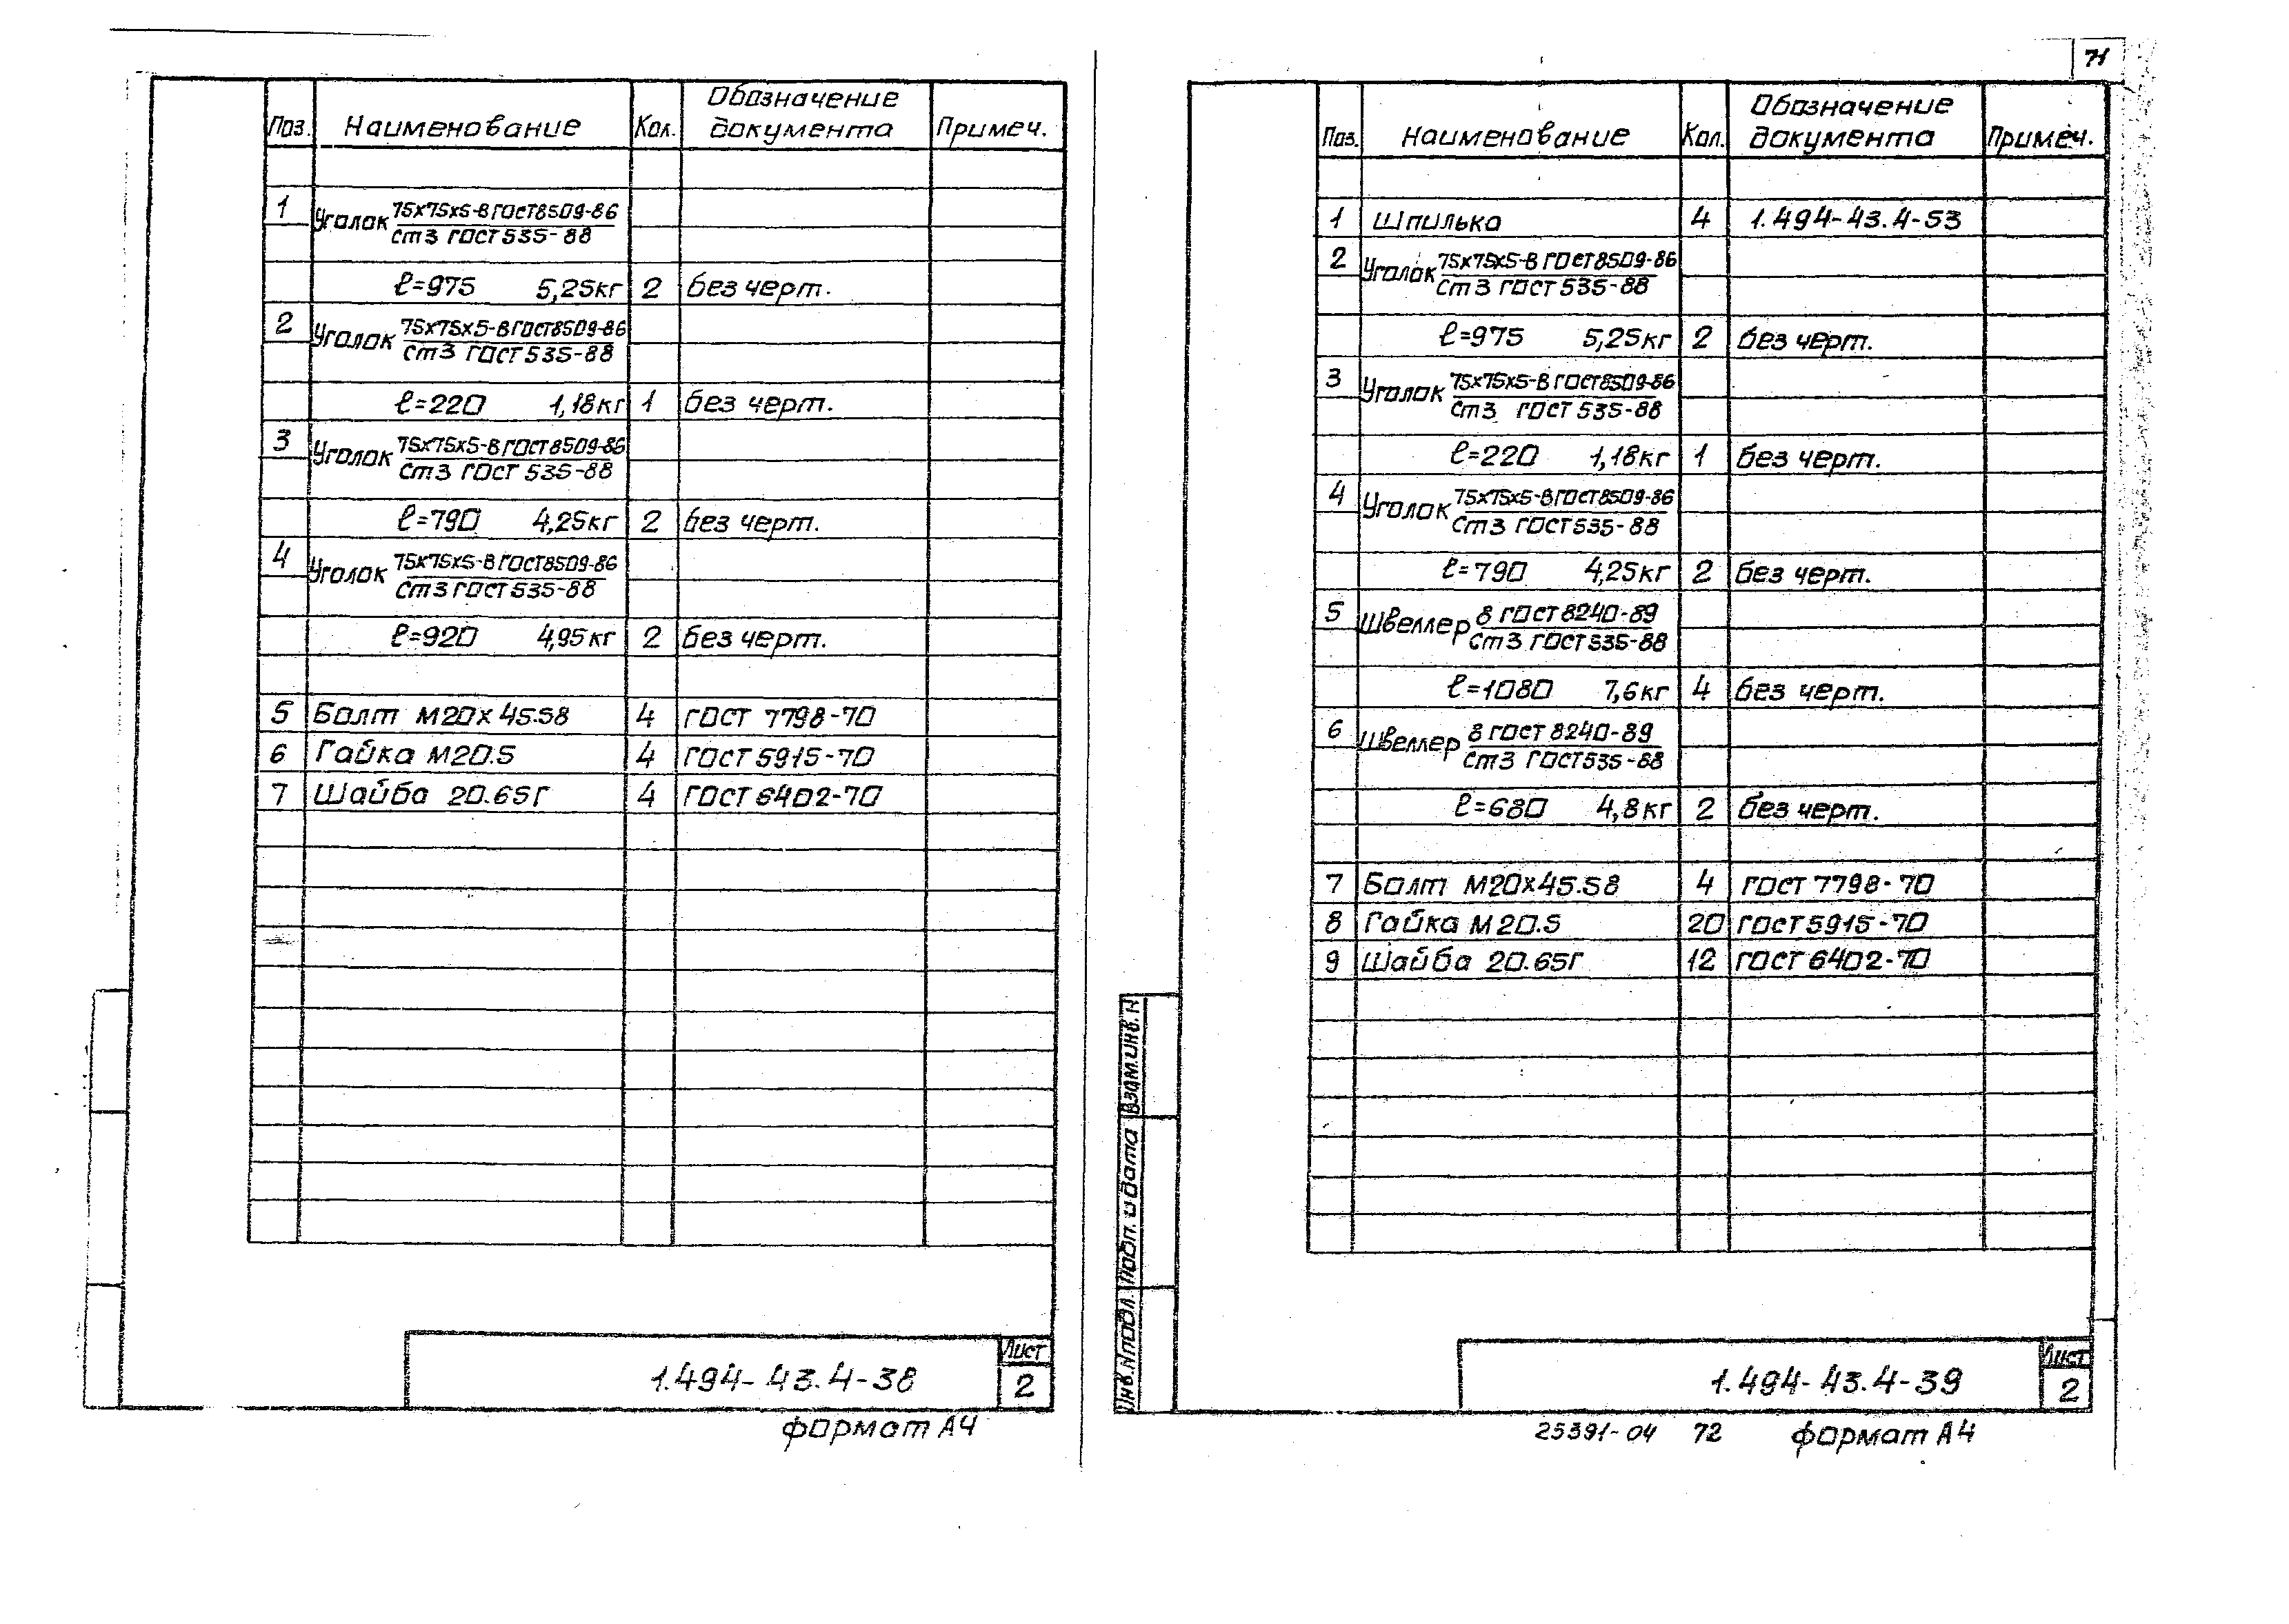 Поз. Наименование Кол. Обозначение документа Примеч.
1 Уголок 75х75х5-В ГОСТ8509-86
Ст3 ГОСТ535-88
ℓ=975 5,25кг 2 без черт.
2 Уголок 75х75х5-В ГОСТ8509-86
Ст3 ГОСТ535-88
ℓ=220 1,18кг 1 без черт.
3 Уголок 75х75х5-В ГОСТ8509-86
Ст3 ГОСТ 535-88
ℓ=790 4,25кг 2 без черт.
4 Уголок 75х75х5-В ГОСТ8509-86
Ст3 ГОСТ535-88
ℓ=920 4,95кг 2 без черт.
5 Болт М20х45.58 4 ГОСТ 7798-70
6 Гайка М20.5 4 ГОСТ5915-70
7 Шайба 20.65Г 4 ГОСТ6402-70
1.494-43.4-38
Лист
2
формат А4
71
Поз. Наименование Кол. Обозначение документа Примеч.
1 Шпилька 4 1.494-43.4-53
2 Уголок 75х75х5-В ГОСТ8509-86
Ст3 ГОСТ535-88
ℓ=975 5,25кг 2 без черт.
3 Уголок 75х75х5-В ГОСТ8509-86
Ст3 ГОСТ535-88
ℓ=220 1,18кг 1 без черт.
4 Уголок 75х75х5-В ГОСТ8509-86
Ст3 ГОСТ535-88
ℓ=790 4,25кг 2 без черт.
5 Швеллер 8 ГОСТ8240-89
Ст3 ГОСТ535-88
ℓ=1080 7,6кг 4 без черт.
6 Швеллер 8 ГОСТ8240-89
Ст3 ГОСТ535-88
ℓ=680 4,8кг 2 без черт.
7 Болт М20х45.58 4 ГОСТ7798-70
8 Гайка М20.5 20 ГОСТ5915-70
9 Шайба 20.65Г 12 ГОСТ6402-70
Взам.инв.N
Подп. и дата
Инв.Nподл.
1.494-43.4-39
Лист
2
25391-04 72 формат А4